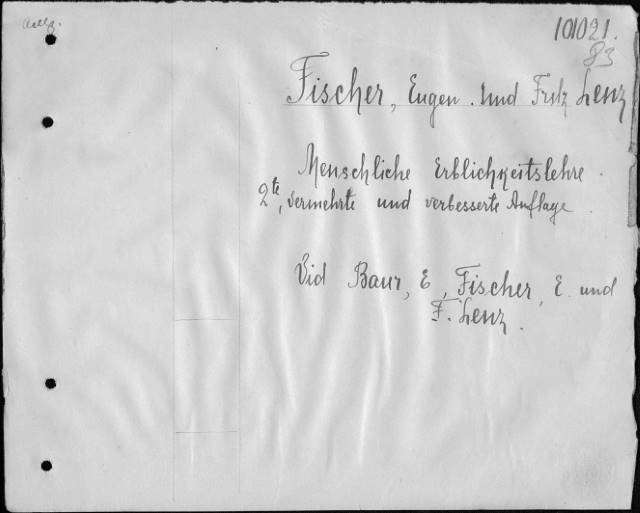 101021.
83
Fischer, Eugen. und Fritz Lenz
Menschliche Erblichkeitslehre.
2te, vermehrte und verbesserte Auflage.
Vid Baur, E, Fischer, E. und
F. Lenz.